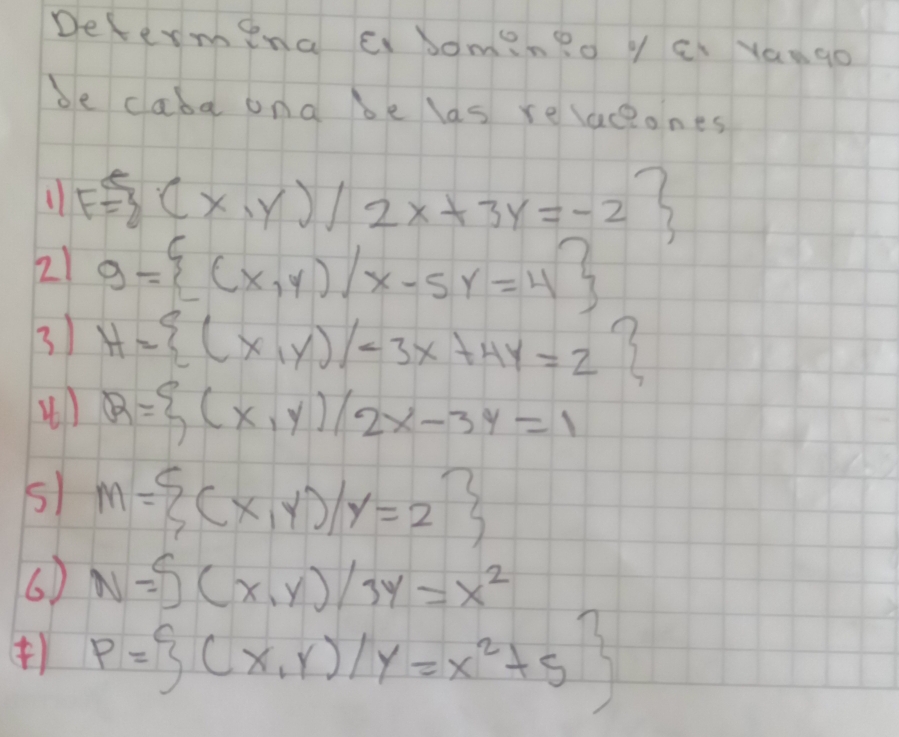 Determina El dominio y El rango
de cada una de las relaciones
1) F={ (x,y) / 2x+3y=-2 }
2) g={ (x,y) /x-5y=4}
3) H={(x,y)/-3x+4y=2 }
4) R={ (x,y)/2x-3y=1
5) M={(x,y)/y=2 }
6) N={ (x,y)/3y=x²
7) P={ (x,y)/y=x²+5 }